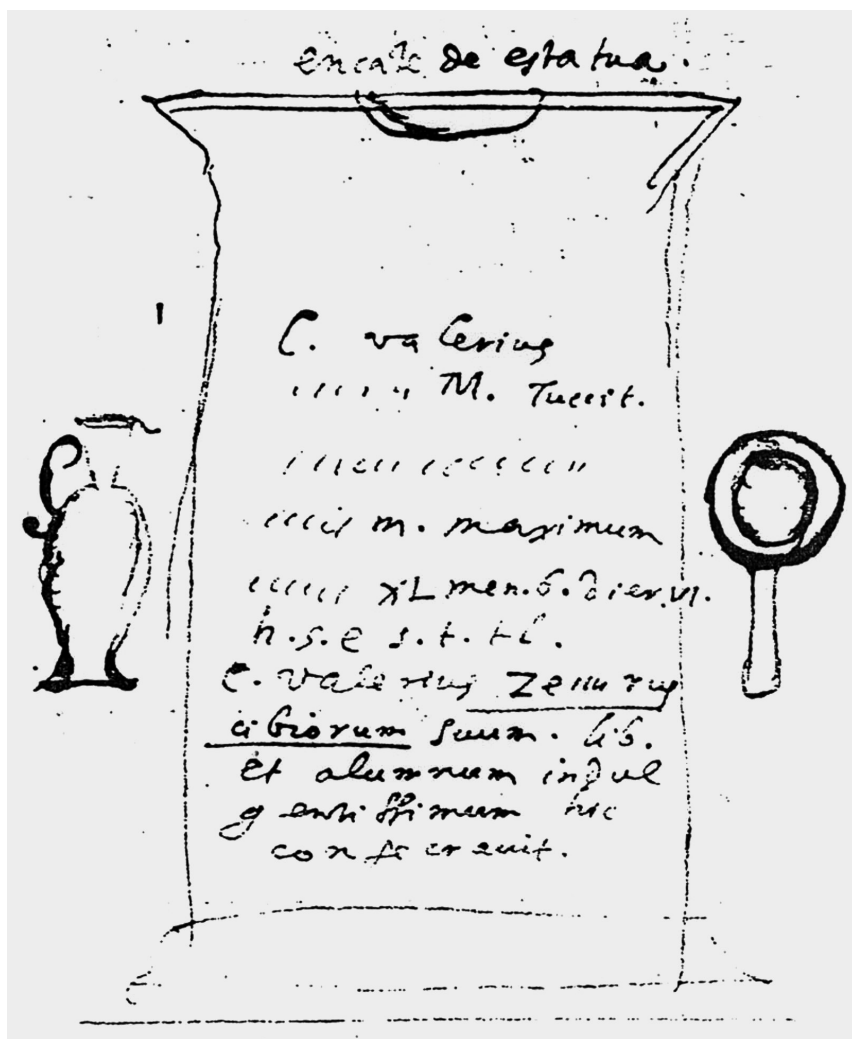 encaxe de estatua.
C. valerius
M. Tuccit.
m. maximum
XL men. 6. dier. VI.
h. s. e s. t. t l.
C. valerius
suum. lib.
et alumnum indul
gentissimum hic
consecravit.